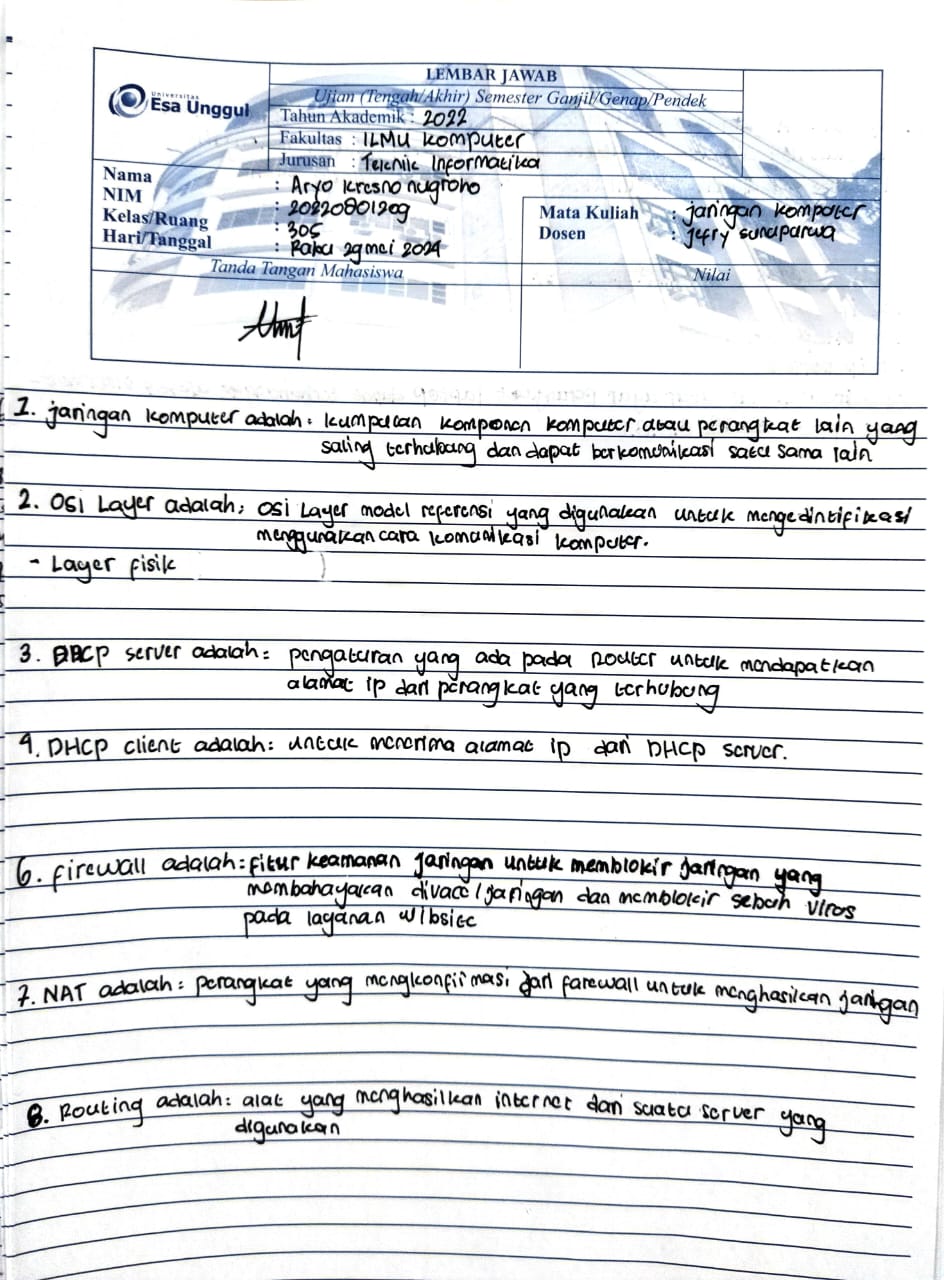 LEMBAR JAWAB
Universitas
Esa Unggul
Ujian (Tengah/Akhir) Semester Ganjil/Genap/Pendek
Tahun Akademik : 2022
Fakultas : ILMU Komputer
Jurusan : Teknik Informatika
Nama : Aryo kresno nugroho
NIM : 20220801209
Kelas/Ruang : 305
Hari/Tanggal : Rabu 29 mei 2024
Mata Kuliah : jaringan komputer
Dosen : jefry sunupurwa
Tanda Tangan Mahasiswa
Nilai
1. jaringan komputer adalah: kumpulan komponen komputer atau perangkat lain yang
saling terhubung dan dapat berkomunikasi satu sama lain
2. OSI Layer adalah: OSI Layer model referensi yang digunakan untuk mengedintifikasi
menggunakan cara komunikasi komputer.
- Layer fisik
3. DHCP server adalah: pengaturan yang ada pada router untuk mendapatkan
alamat ip dari perangkat yang terhubung
4. DHCP client adalah: untuk menerima alamat ip dari DHCP server.
6. firewall adalah: fitur keamanan jaringan untuk memblokir jaringan yang
membahayakan divace/jaringan dan memblokir sebuh virus
pada layanan wibsite
7. NAT adalah: perangkat yang mengkonfiimasi dari farewall untuk menghasilkan jaringan
8. Routing adalah: alat yang menghasilkan internet dari suatu server yang
digunakan